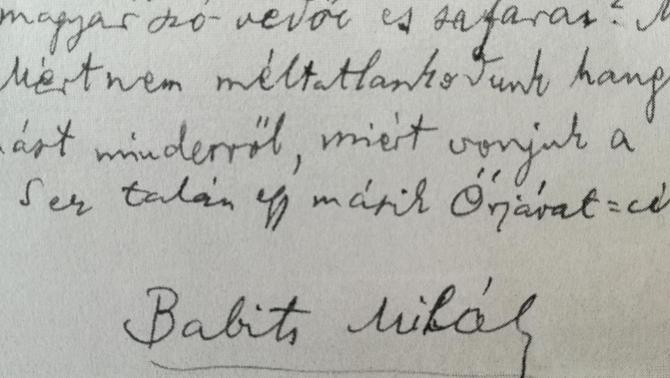 magyar szó védői és
Miért nem méltatlankodunk hang
ást minderről, miért vonjuk a
talán egy másik Őrjárat=ci
Babits Mihály